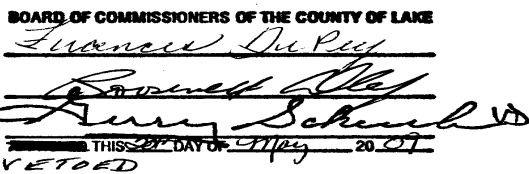 BOARD OF COMMISSIONERS OF THE COUNTY OF LAKE
Frances DuPey
Roosevelt Allen
Gerry Scheub VD
THIS DAY OF May 20 09
VETOED